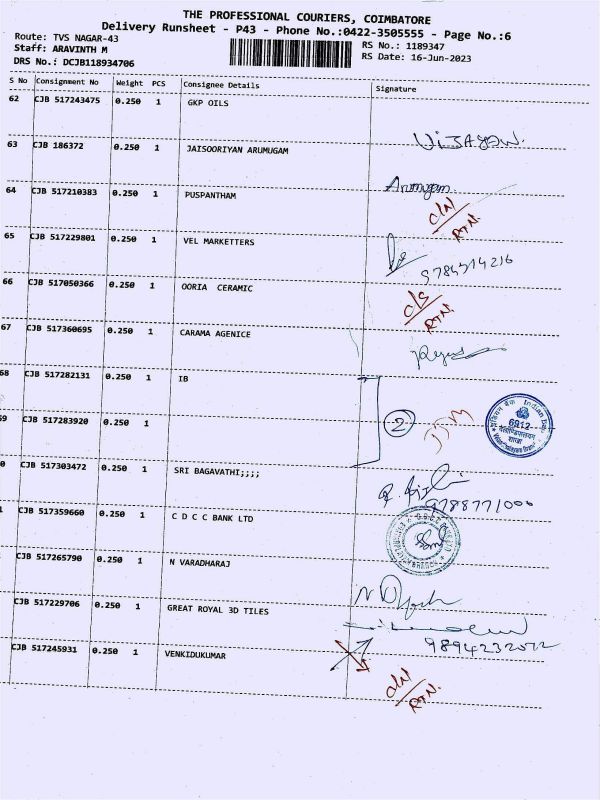 THE PROFESSIONAL COURIERS, COIMBATORE
Delivery Runsheet - P43 - Phone No.:0422-3505555 - Page No.:6
Route: TVS NAGAR-43
RS No.: 1189347
Staff: ARAVINTH M
RS Date: 16-Jun-2023
DRS No.: DCJB118934706
S No Consignment No Weight PCS Consignee Details Signature
62 CJB 517243475 0.250 1 GKP OILS
VIJAYAN.
63 CJB 186372 0.250 1 JAISOORIYAN ARUMUGAM
Arumugam
64 CJB 517210383 0.250 1 PUSPANTHAM
C/N
RTN.
65 CJB 517229801 0.250 1 VEL MARKETTERS
66 CJB 517050366 0.250 1 OORIA CERAMIC
C/S
RTN.
67 CJB 517360695 0.250 1 CARAMA AGENICE
68 CJB 517282131 0.250 1 IB
2
6912
शाखा
69 CJB 517283920 0.250 1
0 CJB 517303472 0.250 1 SRI BAGAVATHI;;;;
9788771000
1 CJB 517359660 0.250 1 C D C C BANK LTD
CJB 517265790 0.250 1 N VARADHARAJ
CJB 517229706 0.250 1 GREAT ROYAL 3D TILES
9894232072
CJB 517245931 0.250 1 VENKIDUKUMAR
C/N
RTN.